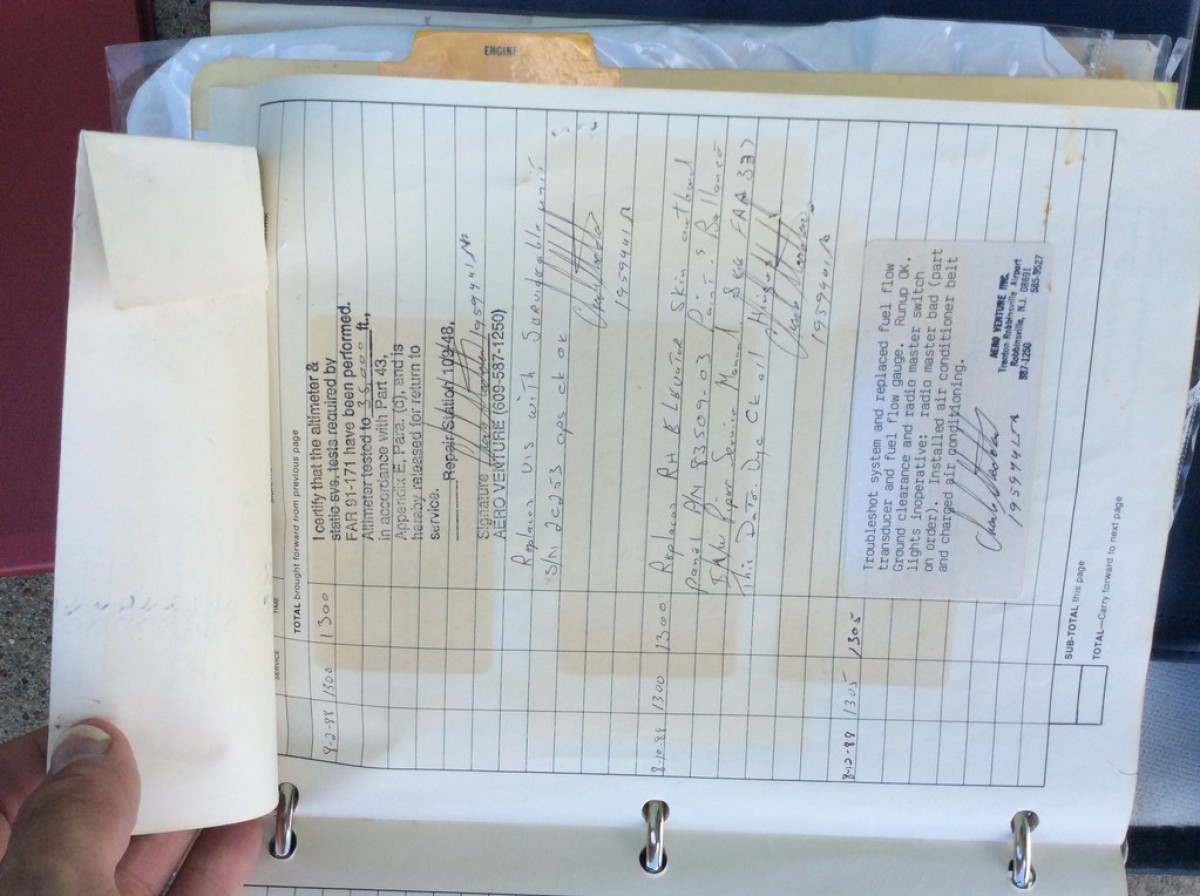 ENGINE
SERVICE TIME
TOTAL brought forward from previous page
1300 1300
I certify that the altimeter &
static sys. tests required by
FAR 91-171 have been performed.
Altimeter tested to 35,000 ft.,
in accordance with Part 43,
Appendix E, Para. (d), and is
hereby released for return to
service.
Repair Station 109-48,
Signature
AERO VENTURE (609-587-1250)
Replaced with Serviceable unit
S/N 2C253 ops ck ok
8-10-88 1300 1300 Replaced RH Elevator Skin outboard
panel P/N 83509-03 Paint & Ballance
Piper Service Manual & See FAA 337
This Date. Dye Ck all Hinges
8-12-88 1305 1305
Troubleshot system and replaced fuel flow
transducer and fuel flow gauge. Runup OK.
Ground clearance and radio master switch
lights inoperative: radio master bad (part
on order). Installed air conditioner belt
and charged air conditioning.
AERO VENTURE INC.
Trenton-Robbinsville Airport
Robbinsville, N.J. 08691
587-1250 585-9527
SUB-TOTAL this page
TOTAL—Carry forward to next page